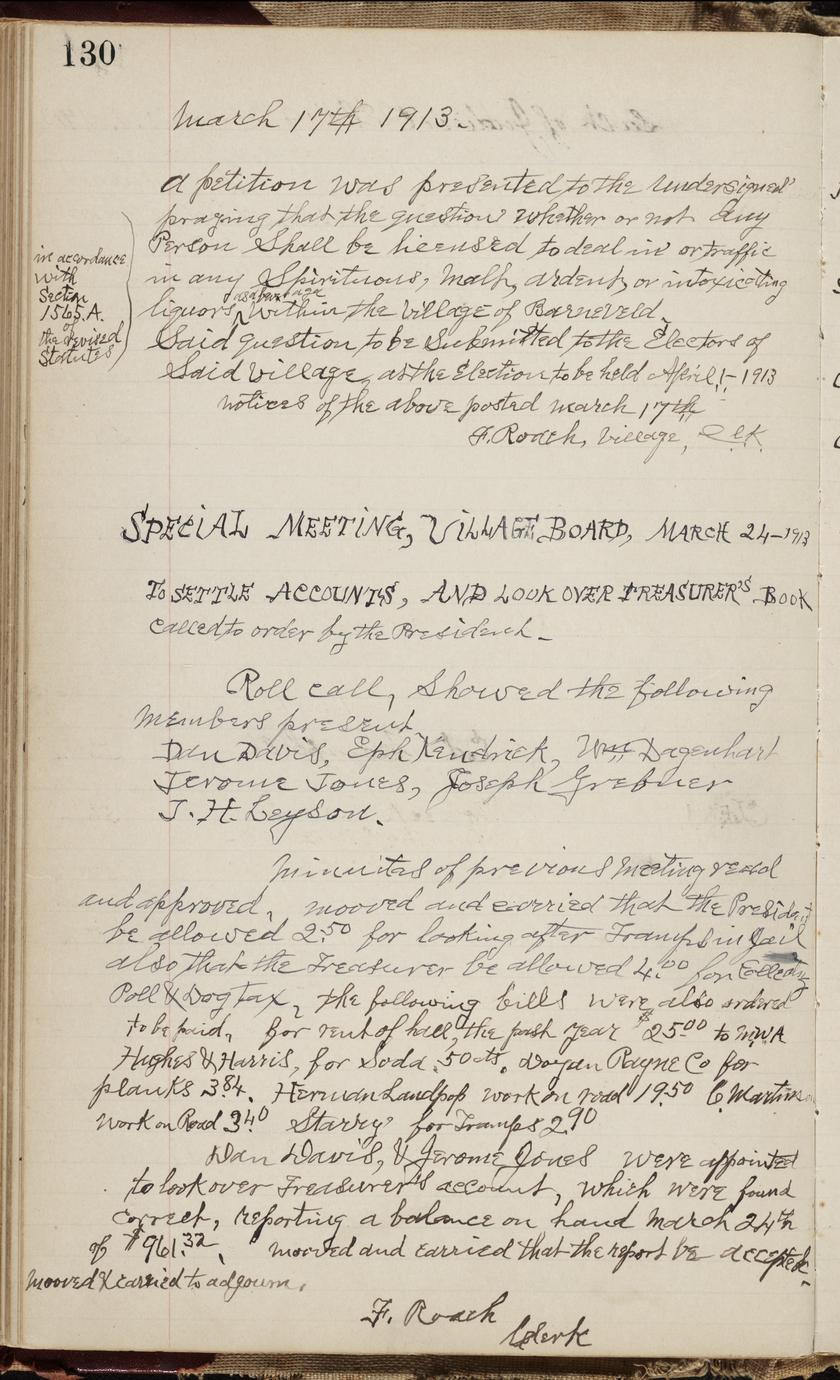 130
March 17th 1913.
a petition was presented to the undersigned
praying that the question whether or not any
Person Shall be licensed to deal in or traffic
in any Spirituous, Malt, ardent, or intoxicating
liquors, as a beverage within the Village of Barneveld.
in accordance
with
Section
1565.A.
of
the revised
Statutes
Said question to be Submitted to the Electors of
Said Village, at the Election to be held April, 1- 1913
notices of the above posted march 17th
F. Roach, Village, Clk.
SPECIAL MEETING, VILLAGE BOARD, MARCH 24-1913
To SETTLE ACCOUNTS, AND LOOK OVER TREASURER'S BOOK
Called to order by the President.
Roll call, Showed the following
Members present
Dan Davis, Eph Kendrick, Wm Dagenhart
Jerome Jones, Joseph Grebner
J. H. Leyson.
minuites of previous Meeting read
and approved, mooved and carried that the President
be allowed 2.50 for looking after Tramps in Jail
also that the Treasurer be allowed 4.00 for Collecting
Poll & Dog Tax, the following bills were also ordered
to be paid, for rent of hall, the past year $25.00 to MWA
Hughes & Harris, for Soda .50 cts. Payne Co for
planks 3.84. Herman work on road 19.50 C. Martinson
work on Road 3.40 Starry for Tramps 2.90
Dan Davis, & Jerome Jones were appointed
to look over Treasurer's account, which were found
correct, reporting a balance on hand March 24th
of $961.32, mooved and carried that the report be accepted.
mooved & carried to adjourn.
F. Roach
Clerk